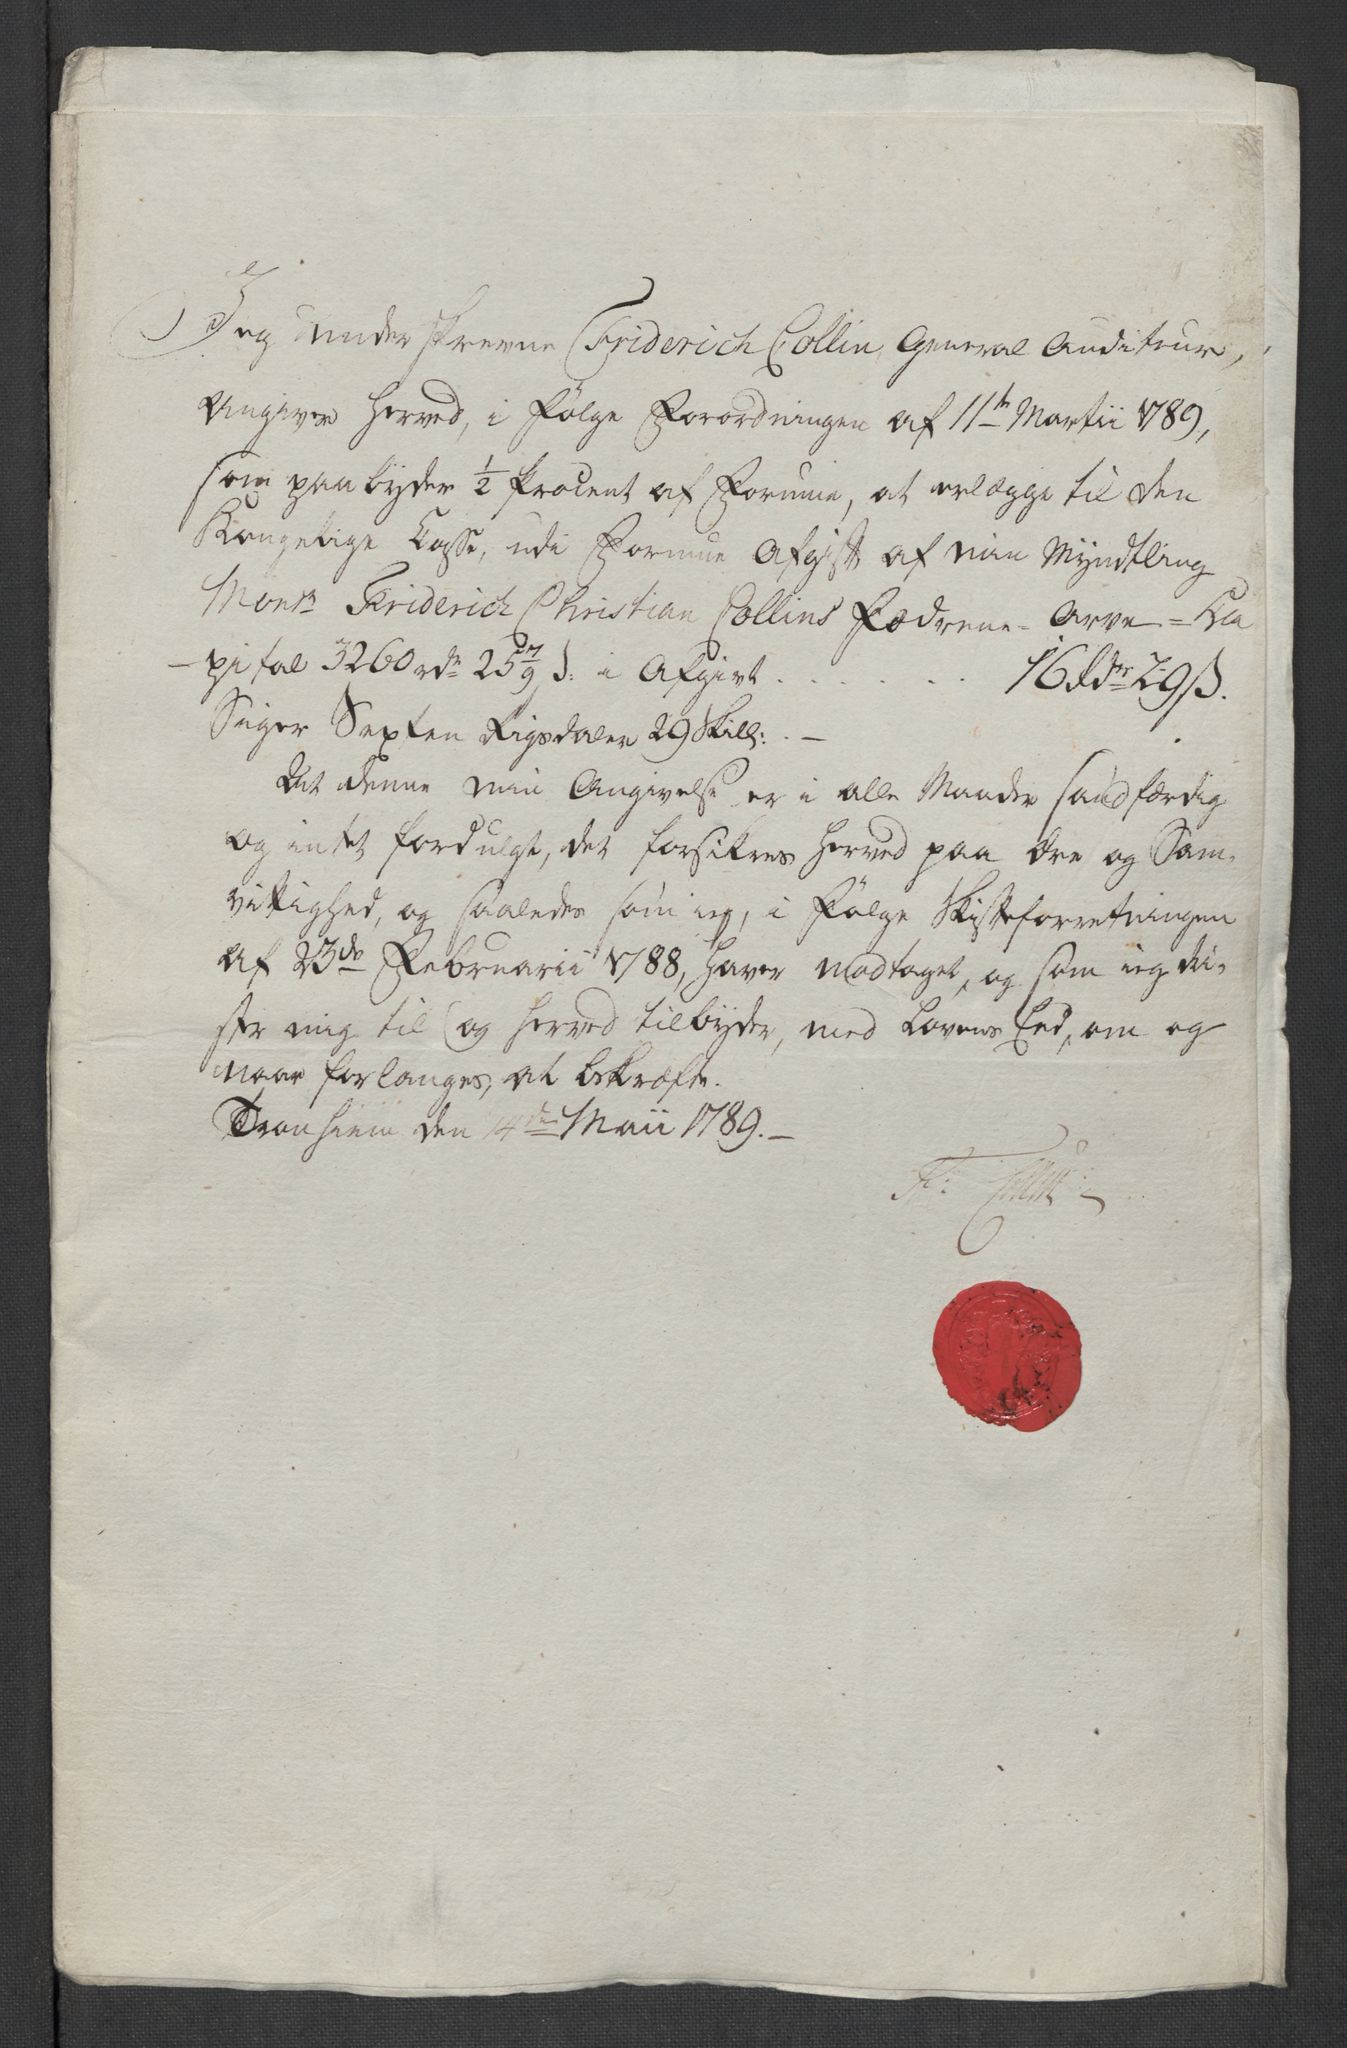 Jeg underskrevne Friderich Collin, General Auditeur,
Angiver herved, i Følge Forordningen af 11te Martii 1789,
som paabyder ½ Procent af Formue, at erlægge til den
Kongelige Casse, udi Formue Afgift af min Myndtling
Monsr. Friderich Christian Collins Fædrene-Arve-Ca
-pital 3260 rdr 25 7/9 ß: i Afgivt . . . . . . 16 Rdr 29 ß.
Siger Sexten Rigsdaler 29 Skill: . —
At denne min Angivelse er i alle Maader sandfærdig
og intet fordulgt, det forsikres herved paa Ære og Sam-
vittighed, og saaledes som ieg, i Følge Skifteforretningen
af 23de Februarii 1788, haver modtaget, og som ieg tri-
ster mig til (og herved tilbyder, med Lovens Eed, om og
naar forlanges, at bekræfte.
Tronhiem den 14de Maii 1789. —
Fr: Collin